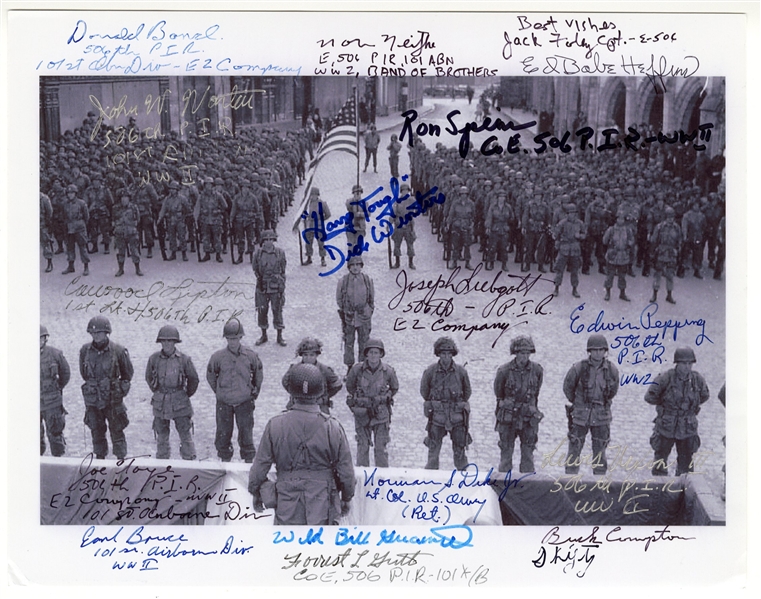 Donald Bond
506th P.I.R.
101st Abn Div - E2 Company
E, 506 P.I.R. 101 ABN
WW2, BAND OF BROTHERS
Best Wishes
Jack Foley Cpt.-E-506
Ed Babe Heffron
John W.
506th P.I.R.
101st E.
WW II
Ron Speirs
Co E. 506 P.I.R.-WWII
"Hang Tough"
Dick Winters
Carwood Lipton
1st Lt. 506th P.I.R
Joseph Liebgott
506th - P.I.R
E2 Company
Edwin Pepping
506th
P.I.R.
WW2
Joe Toye
506th P.I.R.
E2 Company - WWII
101 st. Airborne Div
Norman S Dike Jr.
Lt. Col. U.S. Army
(Ret.)
Lewis Nixon
506th P.I.R.
WW II
Earl
101 st. Airborne Div.
WW II
Wild Bill Guarnere
Forrest L Guth
Co E, 506 P.I.R-101 A/B
Buck Compton